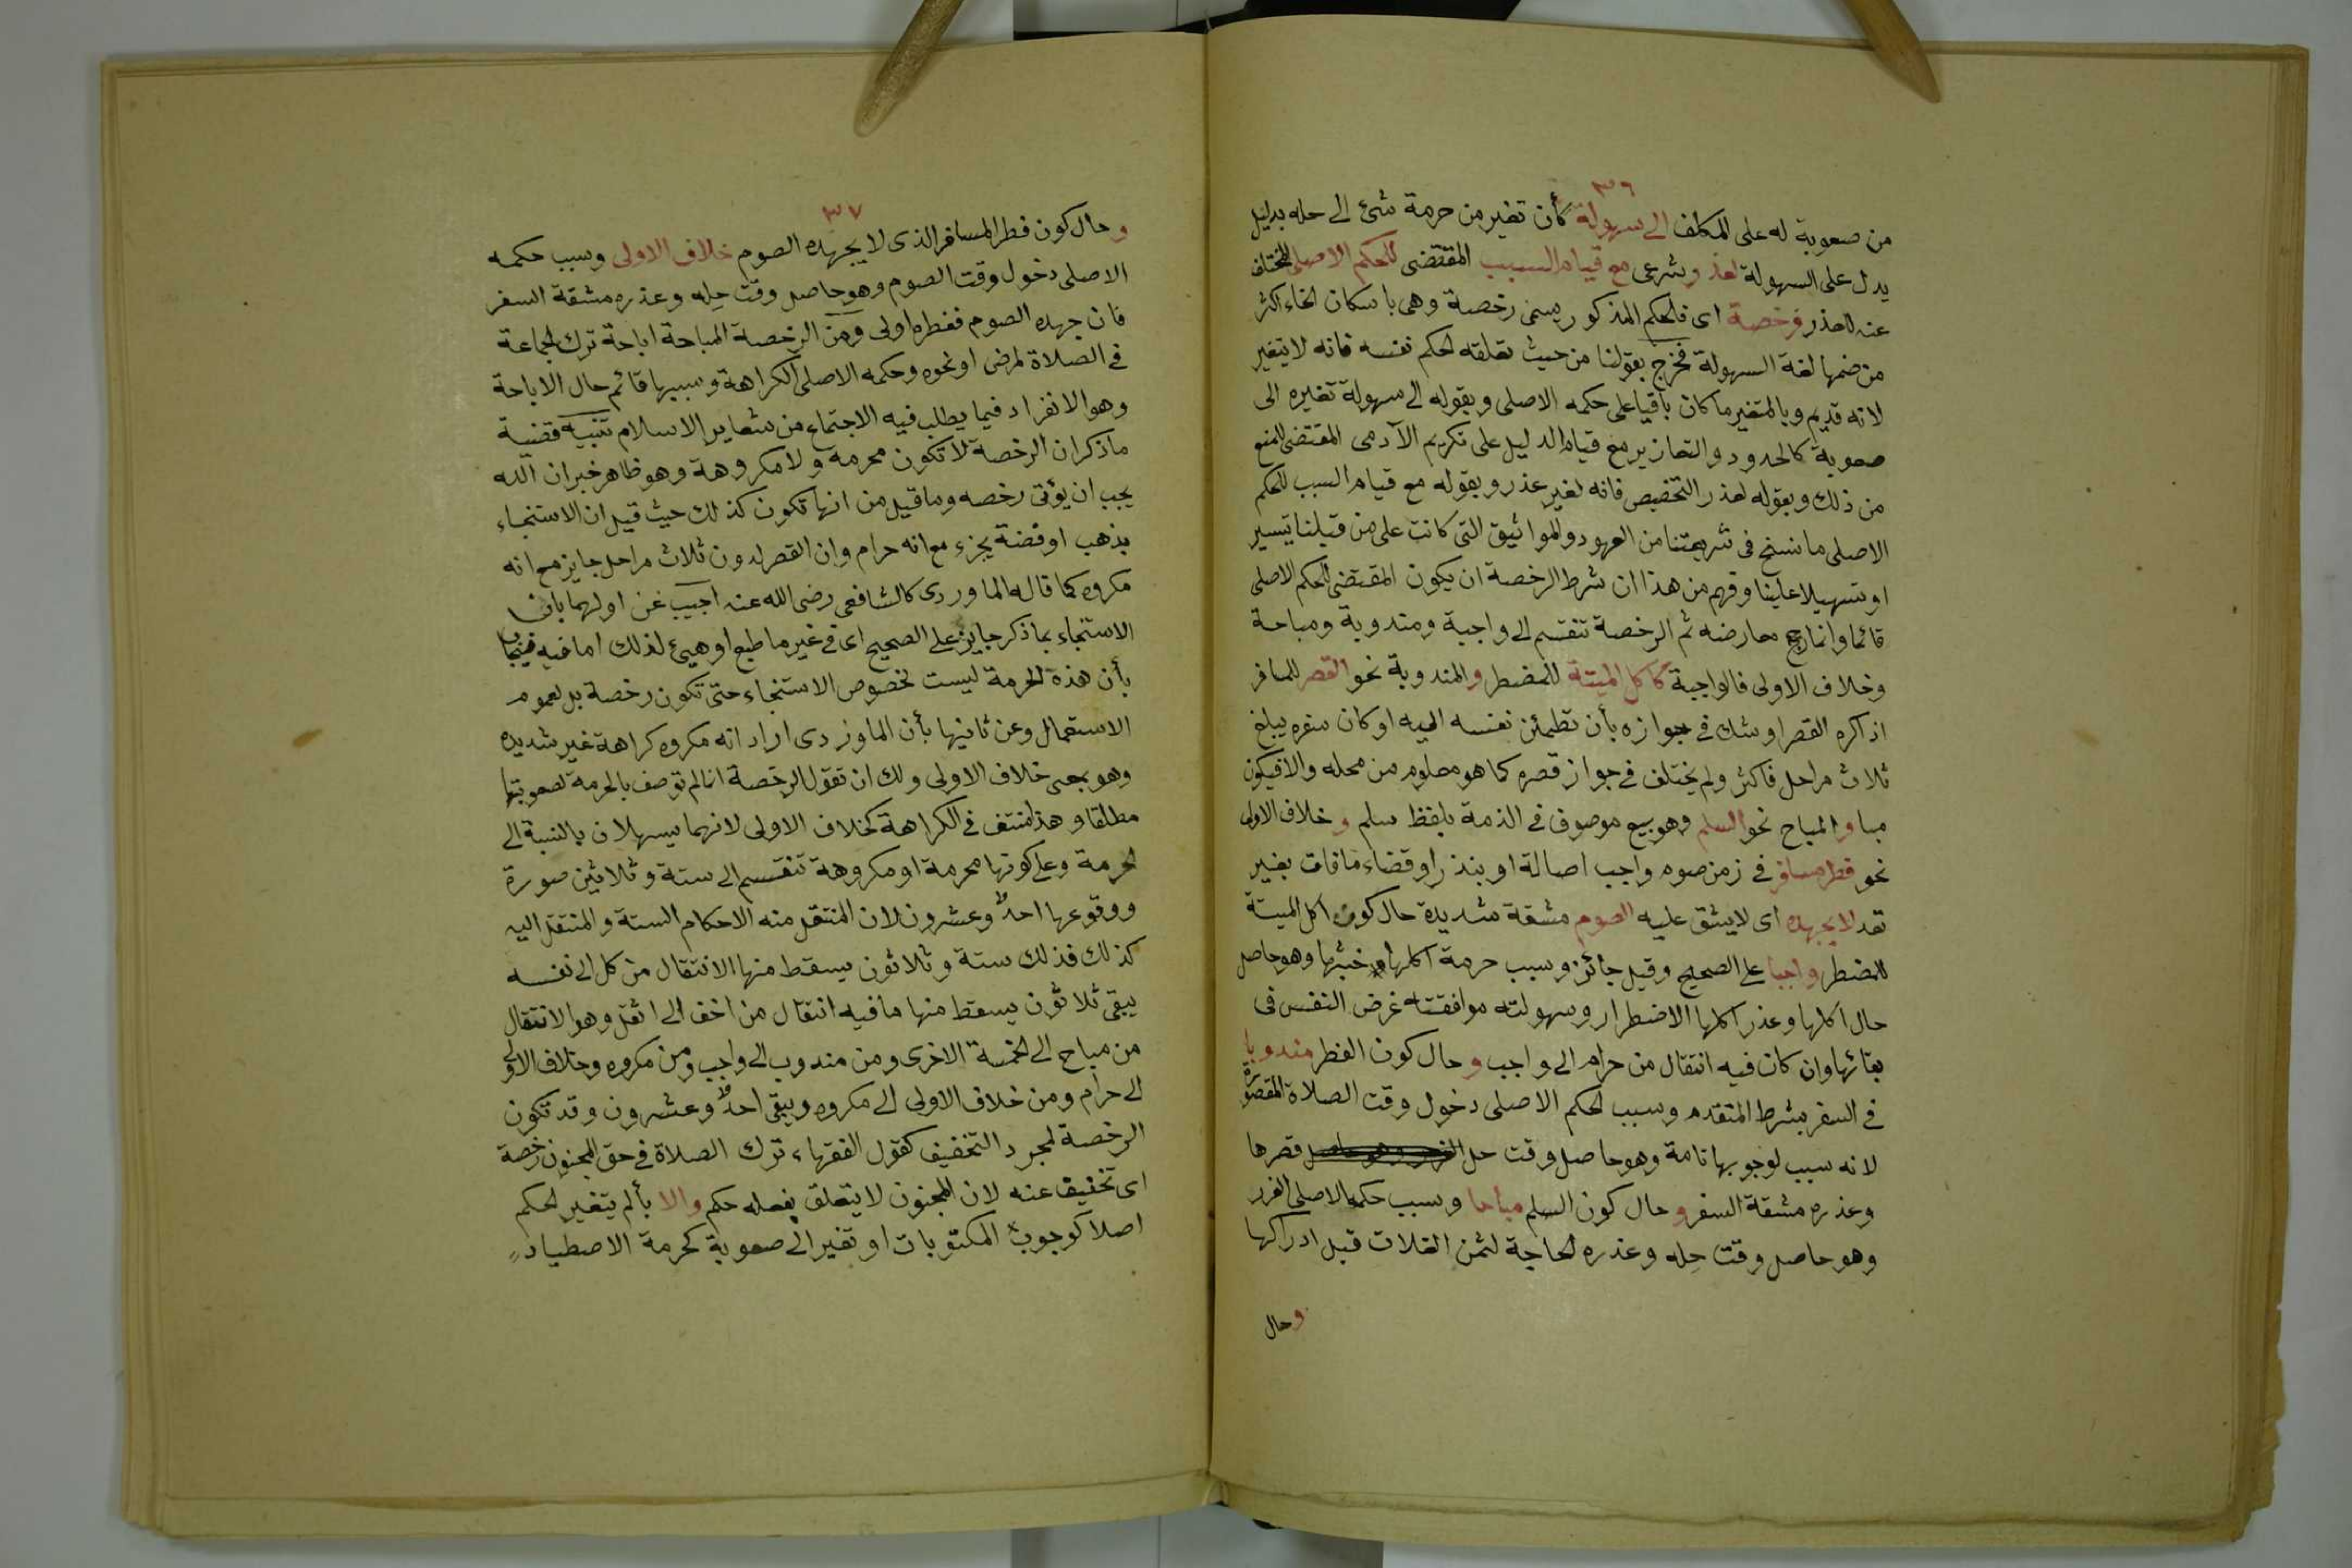 ٣٦
من صعوبة له على المكلف الى سهولة كأن تغير من حرمة شئ الى حله بدليل
يدل على السهولة لعذر شرعى مع قيام السبب المقتضى للحكم الاصلى المختلف
عنه للعذر فرخصة اى فالحكم المذكور يسمى رخصة وهى باسكان الخاء اكثر
من ضمها لغة السهولة فخرج بقولنا من حيث تعلقه الحكم نفسه فانه لا يتغير
لانه قديم وبالمتغير ما كان باقيا على حكمه الاصلى وبقوله الى سهولة تغيره الى
صعوبة كالحدود والتعازير مع قيام الدليل على تكريم الآدمى المقتضى للمنع
من ذلك وبقوله لعذر التخصيص فانه لغير عذر وبقوله مع قيام السبب للحكم
الاصلى ما نسخ فى شريعتنا من العهود والمواثيق التى كانت على من قبلنا تيسير
او تسهيلا علينا وفهم من هذا ان شرط الرخصة ان يكون المقتضى للحكم الاصلى
قائما وانما رجح معارضه ثم الرخصة تنقسم الى واجبة ومندوبة ومباحة
وخلاف الاولى فالواجبة كاكل الميتة للمضطر والمندوبة نحو القصر للمسافر
اذا كره القصر او شك فى جوازه بأن تطمئن نفسه اليه او كان سفره يبلغ
ثلاث مراحل فاكثر ولم يختلف فى جواز قصره كما هو معلوم من محله والا فيكون
مبا والمباح نحو السلم وهو بيع موصوف فى الذمة بلفظ سلم وخلاف الاولى
نحو فطر مسافر فى زمن صوم واجب اصالة او بنذر او قضاء ما فات بغير
تعد لا يجهده اى لا يشق عليه الصوم مشقة شديدة حال كون اكل الميتة
للمضطر واجبا على الصحيح وقيل جائز وسبب حرمة اكلها خبثها وهو حاصل
حال اكلها وعذر اكلها الاضطرار وسهولته موافقته غرض النفس فى
بقائها وان كان فيه انتقال من حرام الى واجب وحال كون الفطر مندوبا
فى السفر بشرط المتقدم وسبب الحكم الاصلى دخول وقت الصلاة المقصورة
لانه سبب لوجوبها تامة وهو حاصل وقت حل قصرها
وعذره مشقة السفر وحال كون السلم مباحا وسبب حكمه الاصلى الغرر
وهو حاصل وقت حله وعذره الحاجة لثمن الغلات قبل ادراكها
وحال
٣٧
وحال كون فطر المسافر الذى لا يجهده الصوم خلاف الاولى وسبب حكمه
الاصلى دخول وقت الصوم وهو حاصل وقت حله وعذره مشقة السفر
فان جهده الصوم ففطره اولى ومن الرخصة المباحة اباحة ترك الجماعة
فى الصلاة لمرض او نحوه وحكمه الاصلى الكراهة وسببها قائم حال الاباحة
وهو الانفراد فيما يطلب فيه الاجتماع من شعاير الاسلام تنبيه قضية
ما ذكر ان الرخصة لا تكون محرمة ولا مكروهة وهو ظاهر خبر ان الله
يحب ان يؤتى رخصه وما قيل من انها تكون كذلك حيث قيل ان الاستنجاء
بذهب او فضة يجزء مع انه حرام وان القصر لدون ثلاث مراحل جايز مع انه
مكروه كما قاله الماوردى كالشافعى رضى الله عنه اجيب عن اولهما بان
الاستنجاء بما ذكر جايز على الصحيح اى فى غير ما طبع او هيئ لذلك اما فيه فيجاب
بأن هذه الحرمة ليست لخصوص الاستنجاء حتى تكون رخصة بل لعموم
الاستعمال وعن ثانيها بأن الماوردى اراد انه مكروه كراهة غير شديده
وهو بمعنى خلاف الاولى ولك ان تقول الرخصة انما لم توصف بالحرمة لصعوبتها
مطلقا وهذا منتف فى الكراهة كخلاف الاولى لانهما يسهلان بالنسبة الى
الحرمة وعلى كونها محرمة او مكروهة تنقسم الى ستة وثلاثين صورة
ووقوعها احد وعشرون لان المنتقل منه الاحكام الستة والمنتقل اليه
كذلك فذلك ستة وثلاثون يسقط منها الانتقال من كل الى نفسه
يبقى ثلاثون يسقط منها ما فيه انتقال من اخف الى اثقل وهو الانتقال
من مباح الى الخمسة الاخرى ومن مندوب الى واجب ومن مكروه وخلاف الاولى
الى حرام ومن خلاف الاولى الى مكروه ويبقى احد وعشرون وقد تكون
الرخصة لمجرد التخفيف كقول الفقهاء ترك الصلاة فى حق المجنون رخصة
اى تخفيف عنه لان المجنون لا يتعلق بفعله حكم والا بألم يتغير الحكم
اصلا كوجوب المكتوبات او تغير الى صعوبة كحرمة الاصطياد